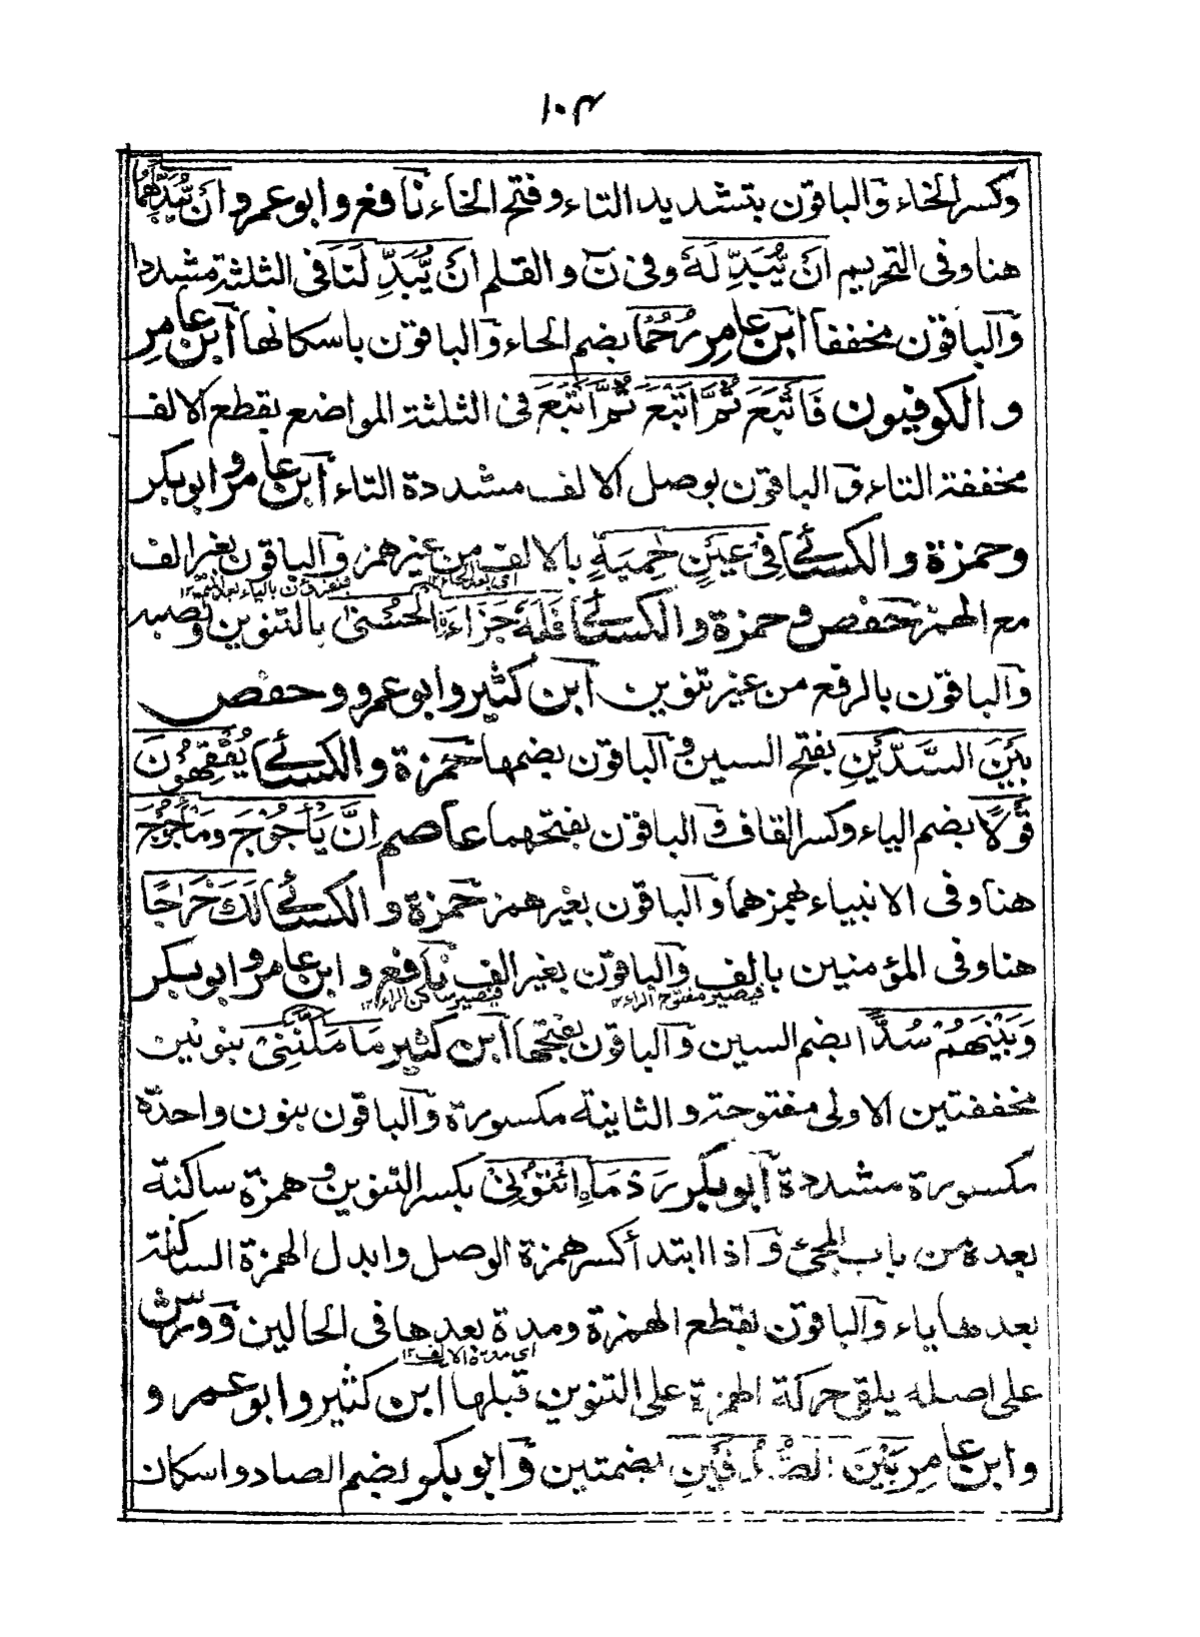 ١٠٤
وكسر الخاء والباقون بتشديد التاء وفتح الخاء نافع وابو عمرو اَنْ يُّبَدِّلَهُمَا
هنا وفى التحريم اَنْ يُّبَدِّلَهٗ وفى نٓ والقلم اَنْ يُّبَدِّلَنَا فى الثلثة مشددا
والباقون مخففا ابن عامر رُحُمًا بضم الحاء والباقون باسكانها ابن عامر
والكوفيون فَاَتْبَعَ ثُمَّ اَتْبَعَ ثُمَّ اَتْبَعَ فى الثلثة المواضع بقطع الالف
مخففة التاء والباقون بوصل الالف مشددة التاء ابن عامر وابوبكر
وحمزة والكسائى فِىْ عَيْنٍ حٰمِيَةٍ بالالف من غير همز والباقون بغير الف
اى بعد الحاء ١٢
مع الهمز حفص وحمزة والكسائى فَلَهٗ جَزَآءَ اِۨلْحُسْنٰى بالتنوين ونصبه
والباقون بالرفع من غير تنوين ابن كثير وابو عمرو وحفص
بَيْنَ السَّدَّيْنِ بفتح السين والباقون بضمها حمزة والكسائى يُفْقِهُوْنَ
قَوْلًا بضم الياء وكسر القاف والباقون بفتحهما عاصم اِنَّ يَاْجُوْجَ وَمَاْجُوْجَ
هنا وفى الانبياء بهمزهما والباقون بغير همز حمزة والكسائى لَكَ خَرٰجًا
هنا وفى المؤمنين بالف والباقون بغير الف نافع وابن عامر وابوبكر
فيصير مفتوح الراء ١٢ فيصير ساكن الراء ١٢
وَبَيْنَهُمْ سُدًّا بضم السين والباقون بفتحها ابن كثير مَا مَكَّنَنِىْ بنونين
مخففتين الاولى مفتوحة والثانية مكسورة والباقون بنون واحدة
مكسورة مشددة ابوبكر رَدْمَاِۨ ائْتُوْنِىْ بكسر التنوين وهمزة ساكنة
بعده من باب المجئ واذا ابتدأ كسر همزة الوصل وابدل الهمزة الساكنة
بعدها ياء والباقون بقطع الهمزة ومدة بعدها فى الحالين وورش
اى مدة الالف ١٢
على اصله يلقى حركة الهمزة على التنوين قبلها ابن كثير وابو عمرو و
وابن عامر بَيْنَ الصُّدُفَيْنِ بضمتين وابوبكر بضم الصاد واسكان